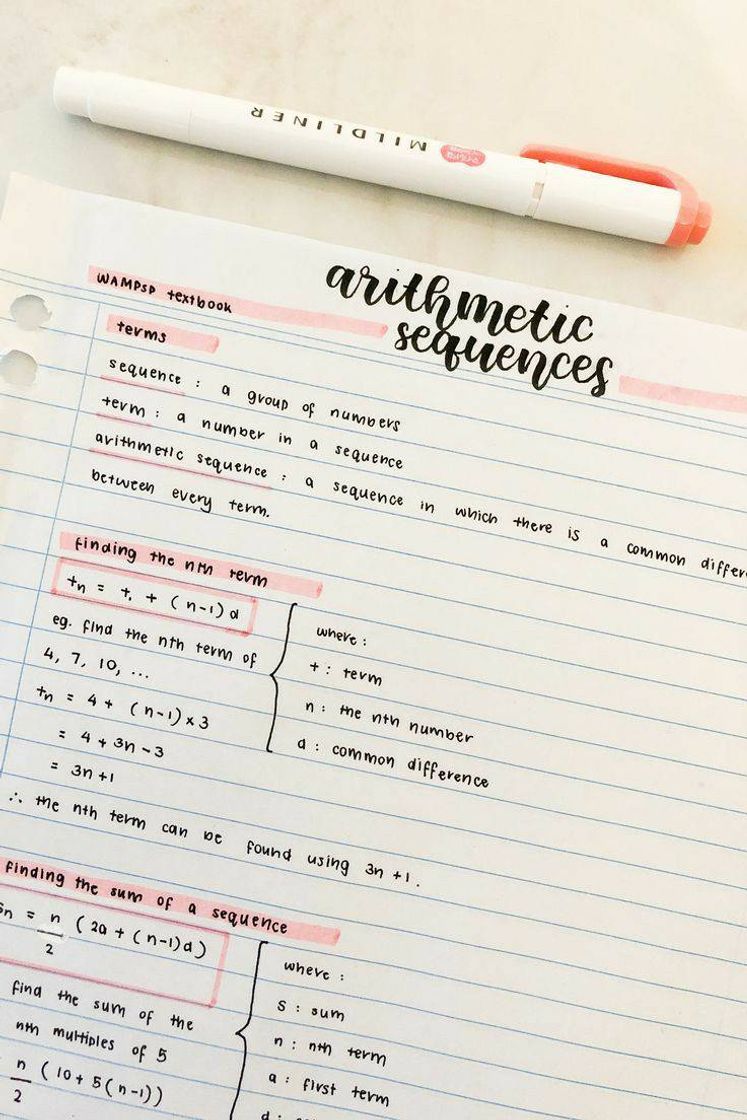 MILDLINER
WAMPSD textbook
arithmetic
sequences
terms
sequence : a group of numbers
term : a number in a sequence
arithmetic sequence : a sequence in which there is a common differe
between every term.
finding the nth term
tn = t1 + (n-1)d
eg. find the nth term of
4, 7, 10, ...
tn = 4 + (n-1)×3
= 4 + 3n - 3
= 3n + 1
where :
t : term
n : the nth number
d : common difference
∴ the nth term can be found using 3n + 1.
finding the sum of a sequence
Sn = n/2 (2a + (n-1)d)
find the sum of the
nth multiples of 5
n/2 (10 + 5(n-1))
where :
S : sum
n : nth term
a : first term
d :